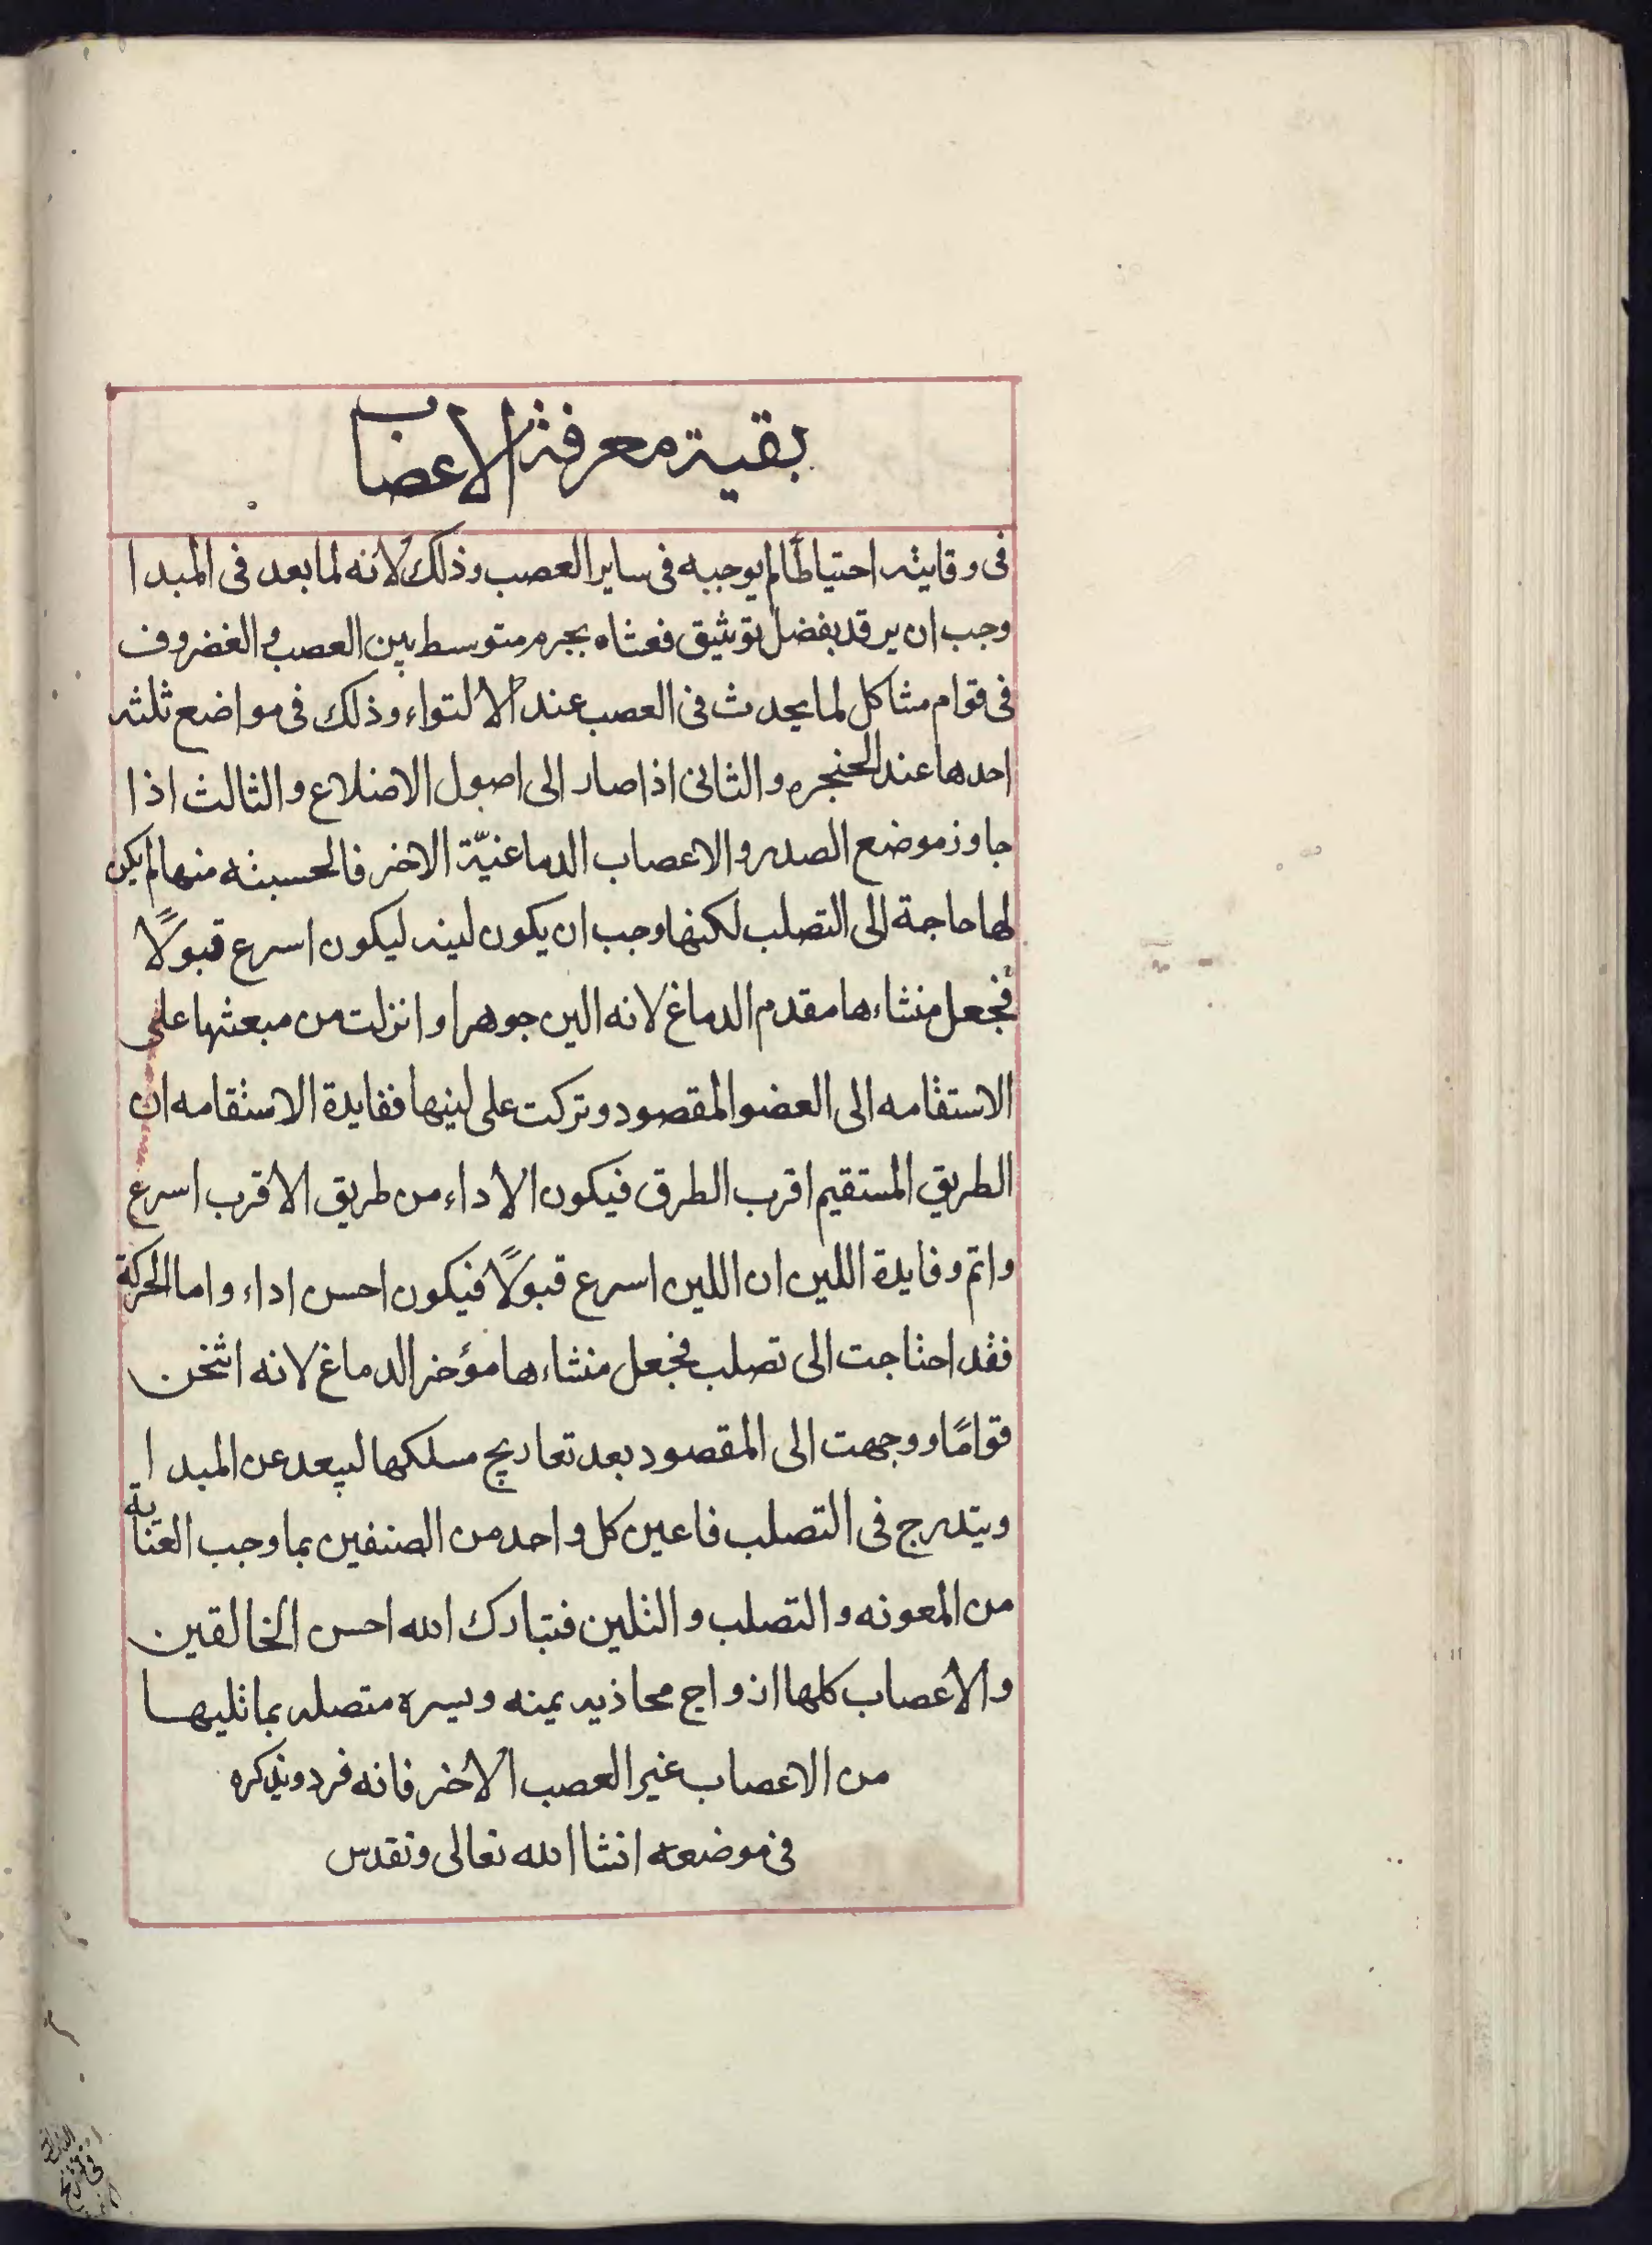 بقية معرفة الاعصاب
فى وقايته احتياطًا لم يوجبه فى ساير العصب وذلك لانه لما بعد فى المبدا
وجب ان يرقد بفضل توثيق فغشاه بجرم متوسط بين العصب والغضروف
فى قوام مشاكل لما يحدث فى العصب عند الالتواء وذلك فى مواضع ثلثه
احدها عند الحنجره والثانى اذا صار الى اصول الاضلاع والثالث اذا
جاوز موضع الصدر والاعصاب الدماغيّة الاخر فالحسيته منها لم يكن
لها حاجة الى التصلب لكنها وجب ان يكون لينه ليكون اسرع قبولًا
فجعل منشاءها مقدم الدماغ لانه الين جوهرا وانزلت من مبعثها على
الاستقامه الى العضو المقصود وتركت على لينها ففايدة الاستقامه ان
الطريق المستقيم اقرب الطرق فيكون الاداء من طريق الاقرب اسرع
واتم وفايدة اللين ان اللين اسرع قبولًا فيكون احسن اداء واما الحركة
فقد احتاجت الى تصلب فجعل منشاءها مؤخر الدماغ لانه اثخن
قوامًا ووجهت الى المقصود بعد تعاريج مسلكها ليبعد عن المبدا
ويتدرج فى التصلب فاعين كل واحد من الصنفين بما وجب العناية
من المعونه والتصلب والتلين فتبارك الله احسن الخالقين
والاعصاب كلها ازواج محاذيه يمنه ويسره متصله بما تليها
من الاعصاب غير العصب الاخر فانه فرد ونذكره
فى موضعه انشا الله تعالى وتقدس